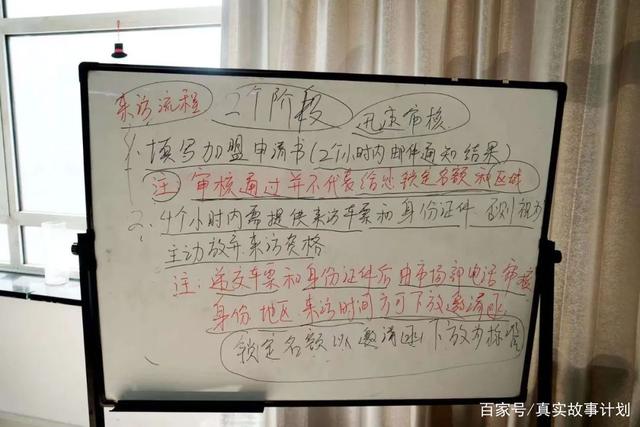 来访流程 2个阶段 迅速审核
1. 填写加盟申请书(2个小时内邮件通知结果)
注: 审核通过并不代表给您锁定名额和区域
2. 4个小时内需提供来访车票和身份证件 否则视为
主动放弃来访资格
注: 递交车票和身份证件后由市场部电话审核
身份 地区 来访时间方可下放邀请函
锁定名额以邀请函下放为标准
百家号/真实故事计划